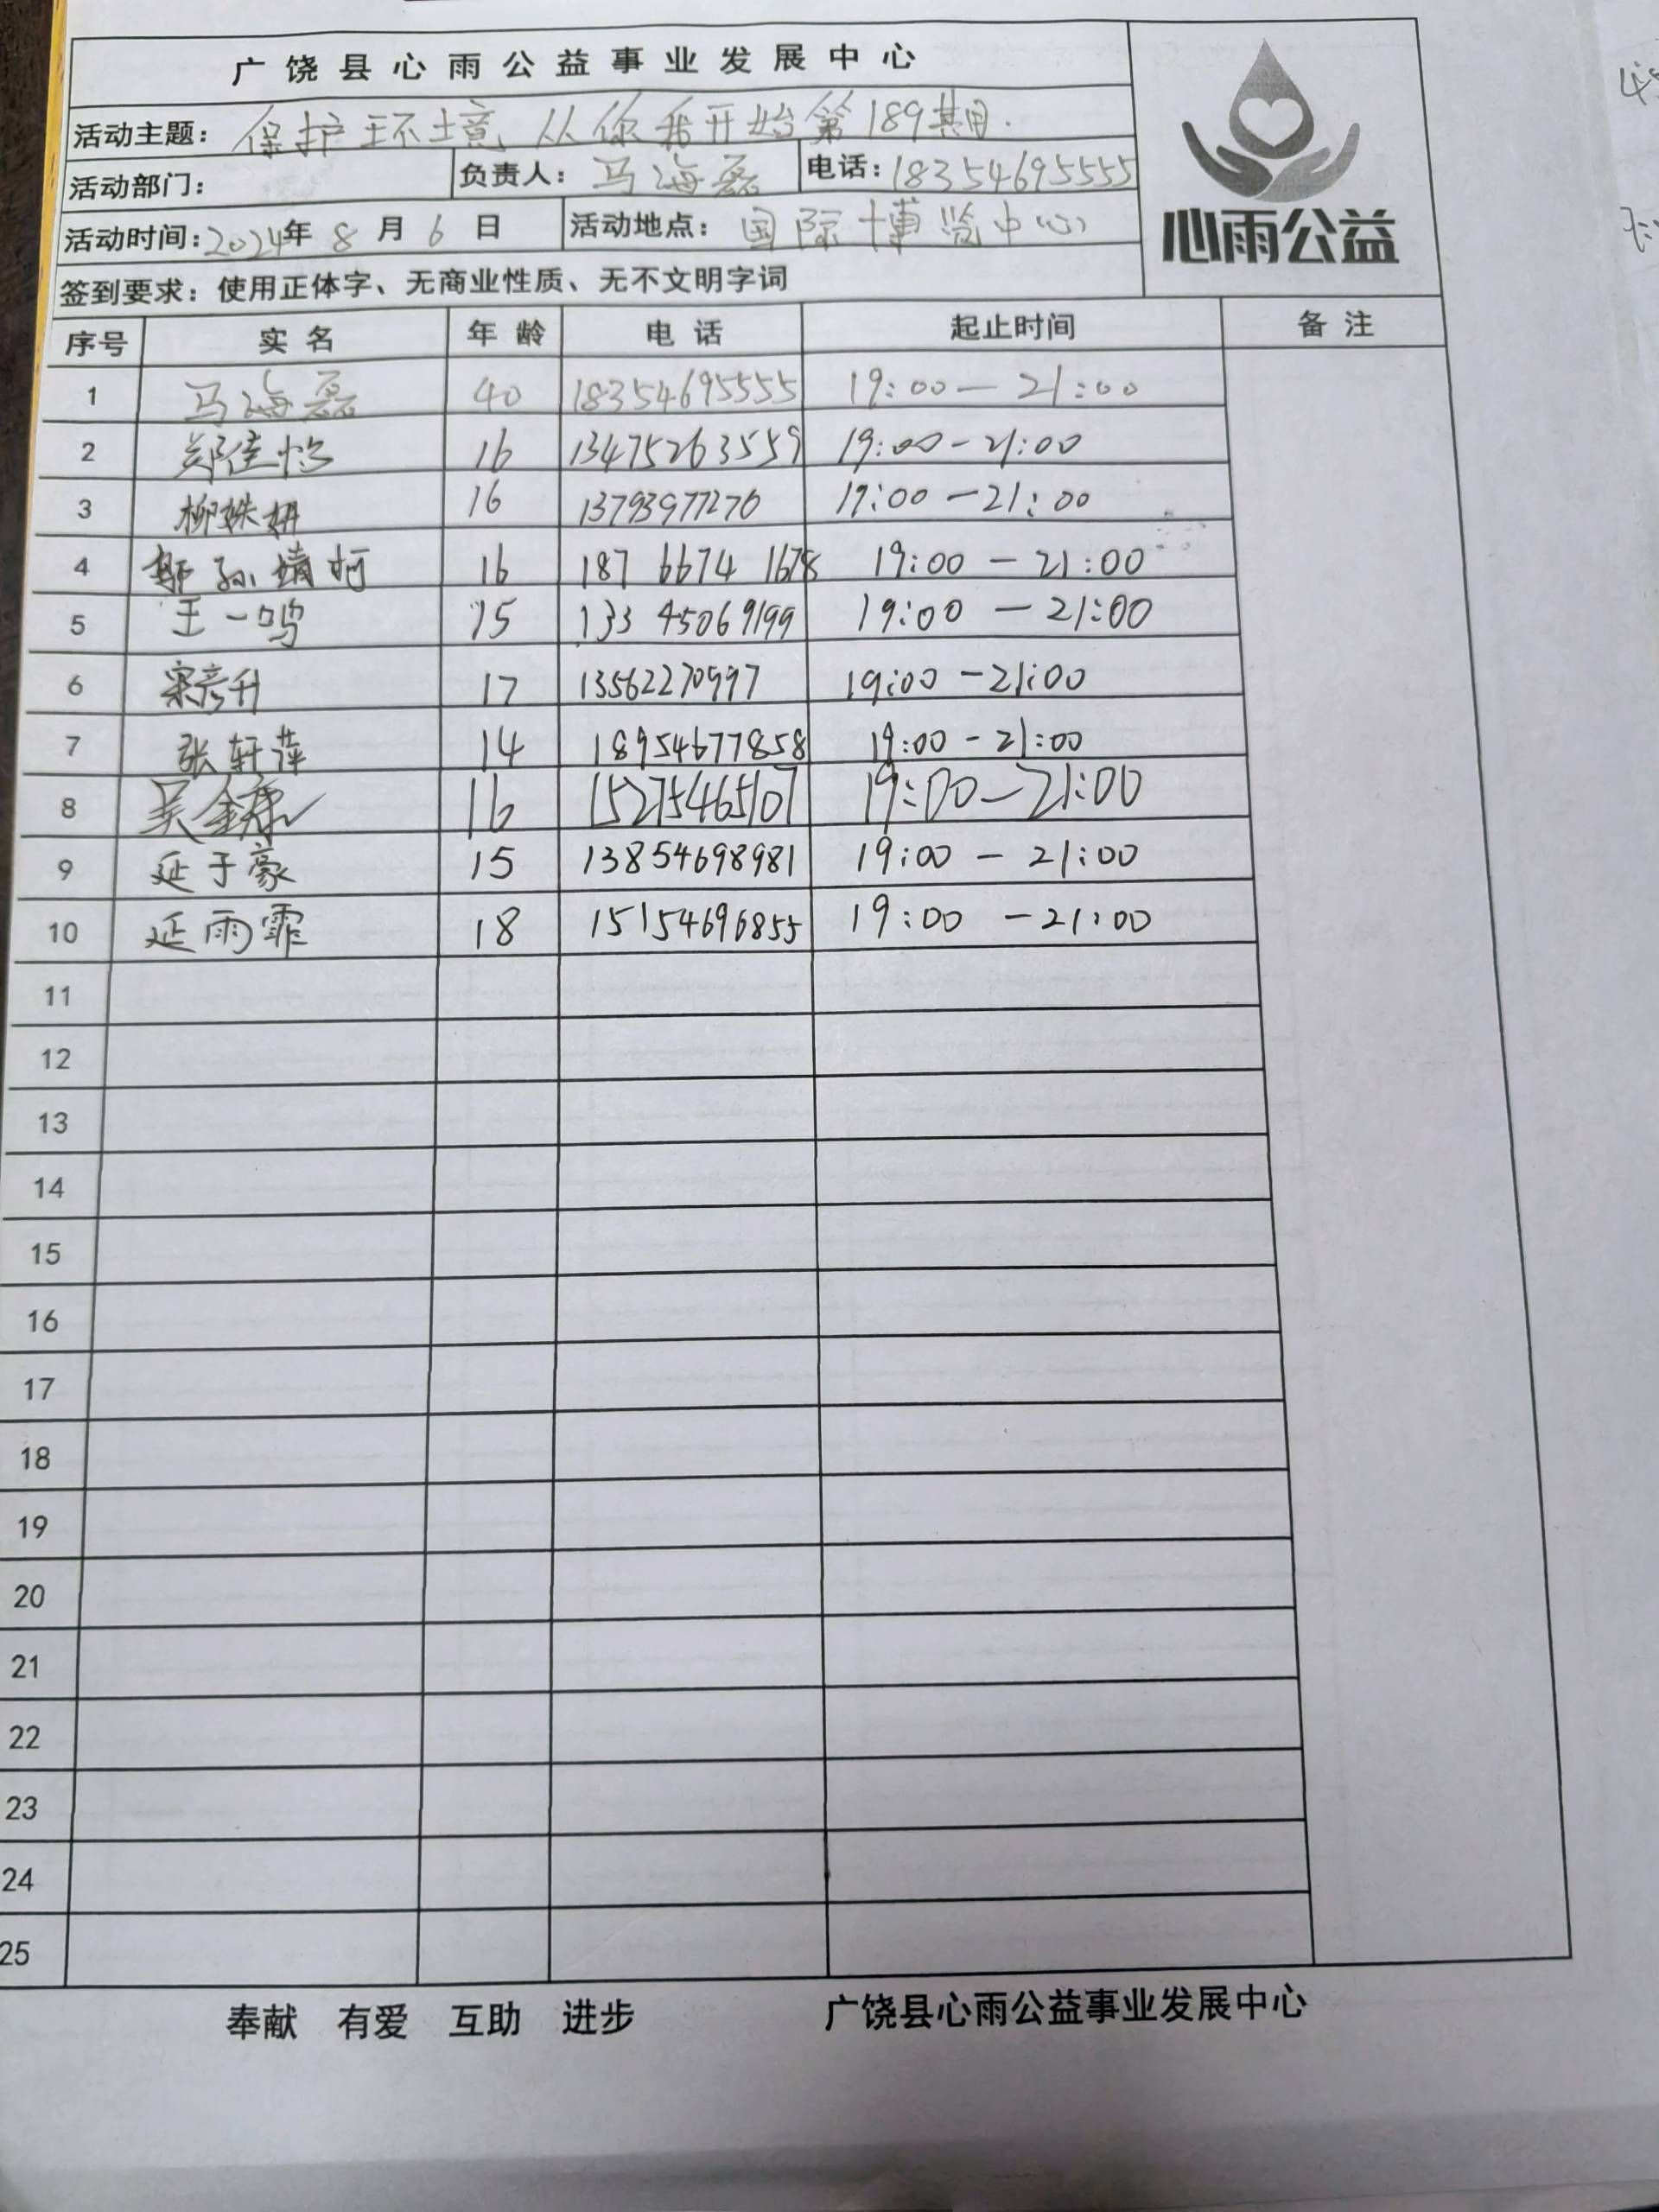 广饶县心雨公益事业发展中心
活动主题：保护环境，从你我开始第189期.
活动部门： 负责人：马海磊 电话：18354695555
活动时间：2024年8月6日 活动地点：国际博览中心
心雨公益
签到要求：使用正体字、无商业性质、无不文明字词
序号 实名 年龄 电话 起止时间 备注
1 马海磊 40 18354695555 19:00—21:00
2 郑佳怡 16 13475263559 19:00-21:00
3 柳 16 13793977276 19:00—21:00
4 郭孙靖轲 16 187 6674 1678 19:00—21:00
5 王一鸣 15 133 45069199 19:00—21:00
6 宋彦升 17 13562270997 19:00-21:00
7 张轩萍 14 18954677858 19:00-21:00
8 吴金 16 15275465107 19:00—21:00
9 延于豪 15 13854698981 19:00—21:00
10 延雨霏 18 15154696855 19:00—21:00
11
12
13
14
15
16
17
18
19
20
21
22
23
24
25
奉献 有爱 互助 进步 广饶县心雨公益事业发展中心